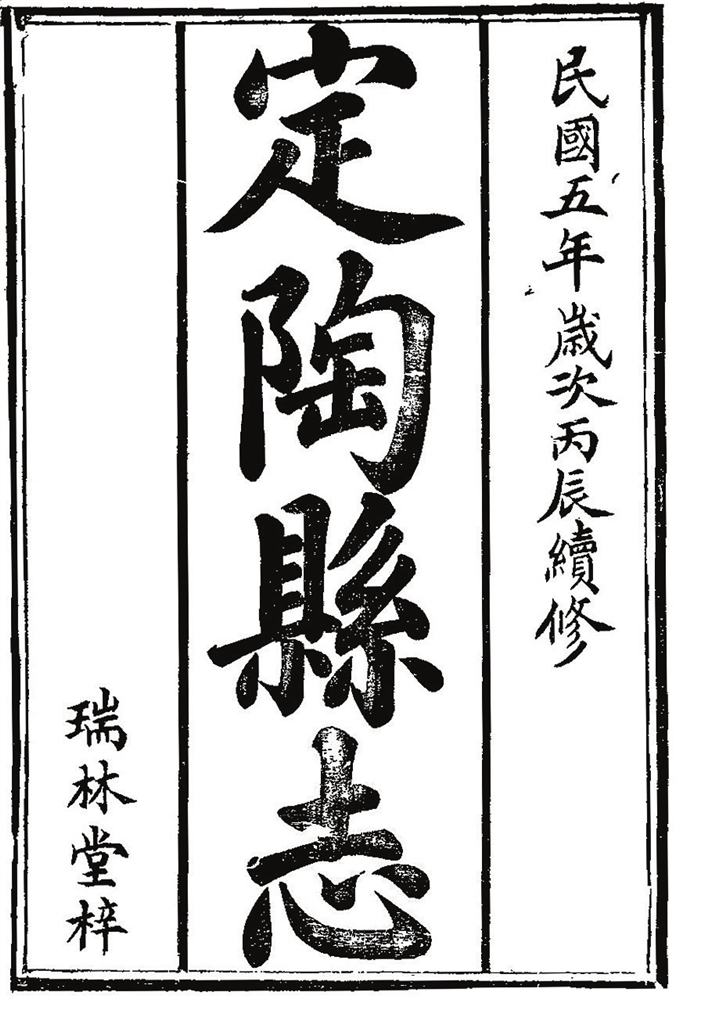 民國五年歲次丙辰續修
定陶縣志
瑞林堂梓